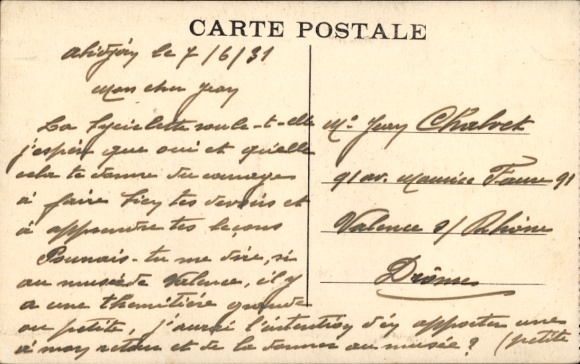 CARTE POSTALE
Abidjan le 7/6/31
Mon cher Jeay
La bycielette roule-t-elle
j'espère que oui et qu'elle
cela te donne du courages
à faire bien tes devoirs et
à apprendre tes leçons
Pourrais-tu me dire, si
au musée de Valence, il y
a une thermitière grande
ou petite, j'aurai l'intention d'en apporter une
à mon retour et de la donner au musée? (petite
Mr Jeay Chalvet
91 av. Maurice Faure 91
Valence s/ Rhône
Drôme